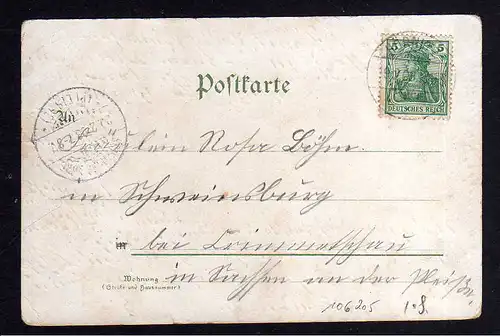 5 5
DEUTSCHES REICH
Postkarte
Fräulein Rosa Böhm.
in Schweinsburg
in bei Crimmetschau
Wohnung
(Straße und Hausnummer)
in Sachsen an der Pleiße.
106205 1.8.